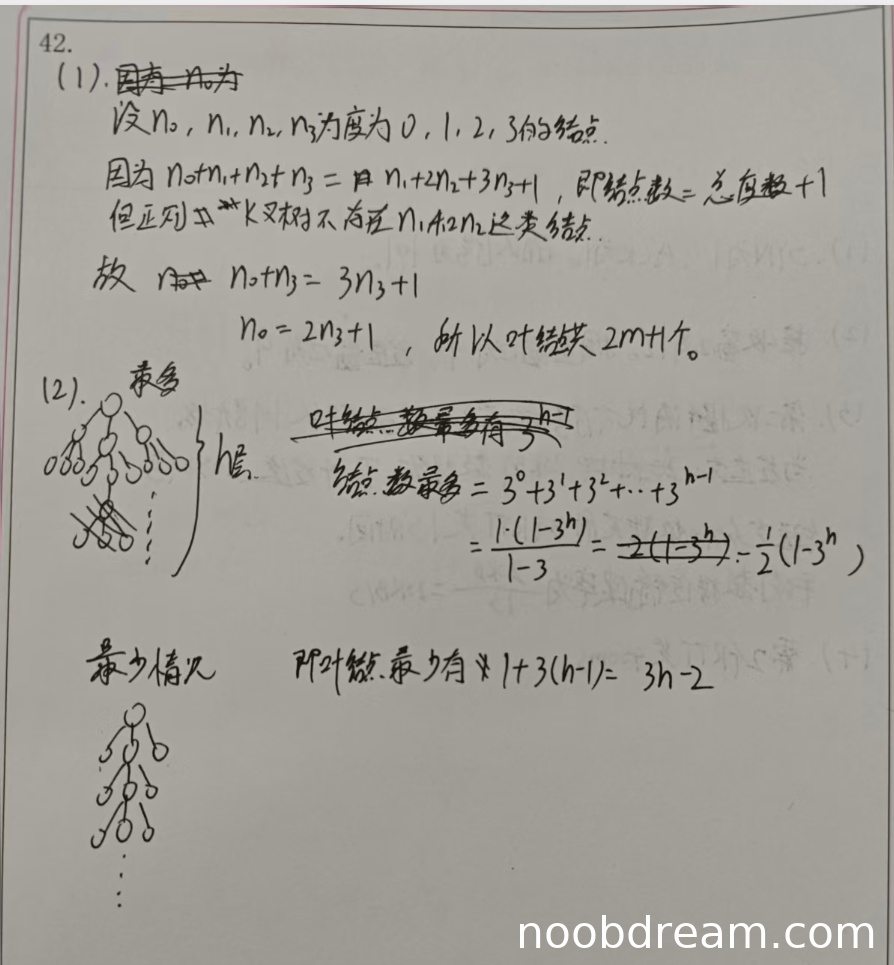 42.
(1).
设n₀, n₁, n₂, n₃为度为0, 1, 2, 3的结点.
因为 n₀+n₁+n₂+n₃ = n₁+2n₂+3n₃+1, 即结点数=总度数+1
但正则K叉树不存在n₁和2n₂这类结点.
故 n₀+n₃ = 3n₃+1
n₀ = 2n₃+1, 所以叶结点共 2m+1个。
(2). 最多
h层
叶结点数最多有 3^(h-1)
结点数最多 = 3⁰+3¹+3²+…+3^(h-1)
= 1·(1-3^h) / (1-3) = 2(1-3^h) - 1/2 (1-3^h)
最少情况 即叶结点最少有 1+3(h-1)= 3h-2
noobdream.com